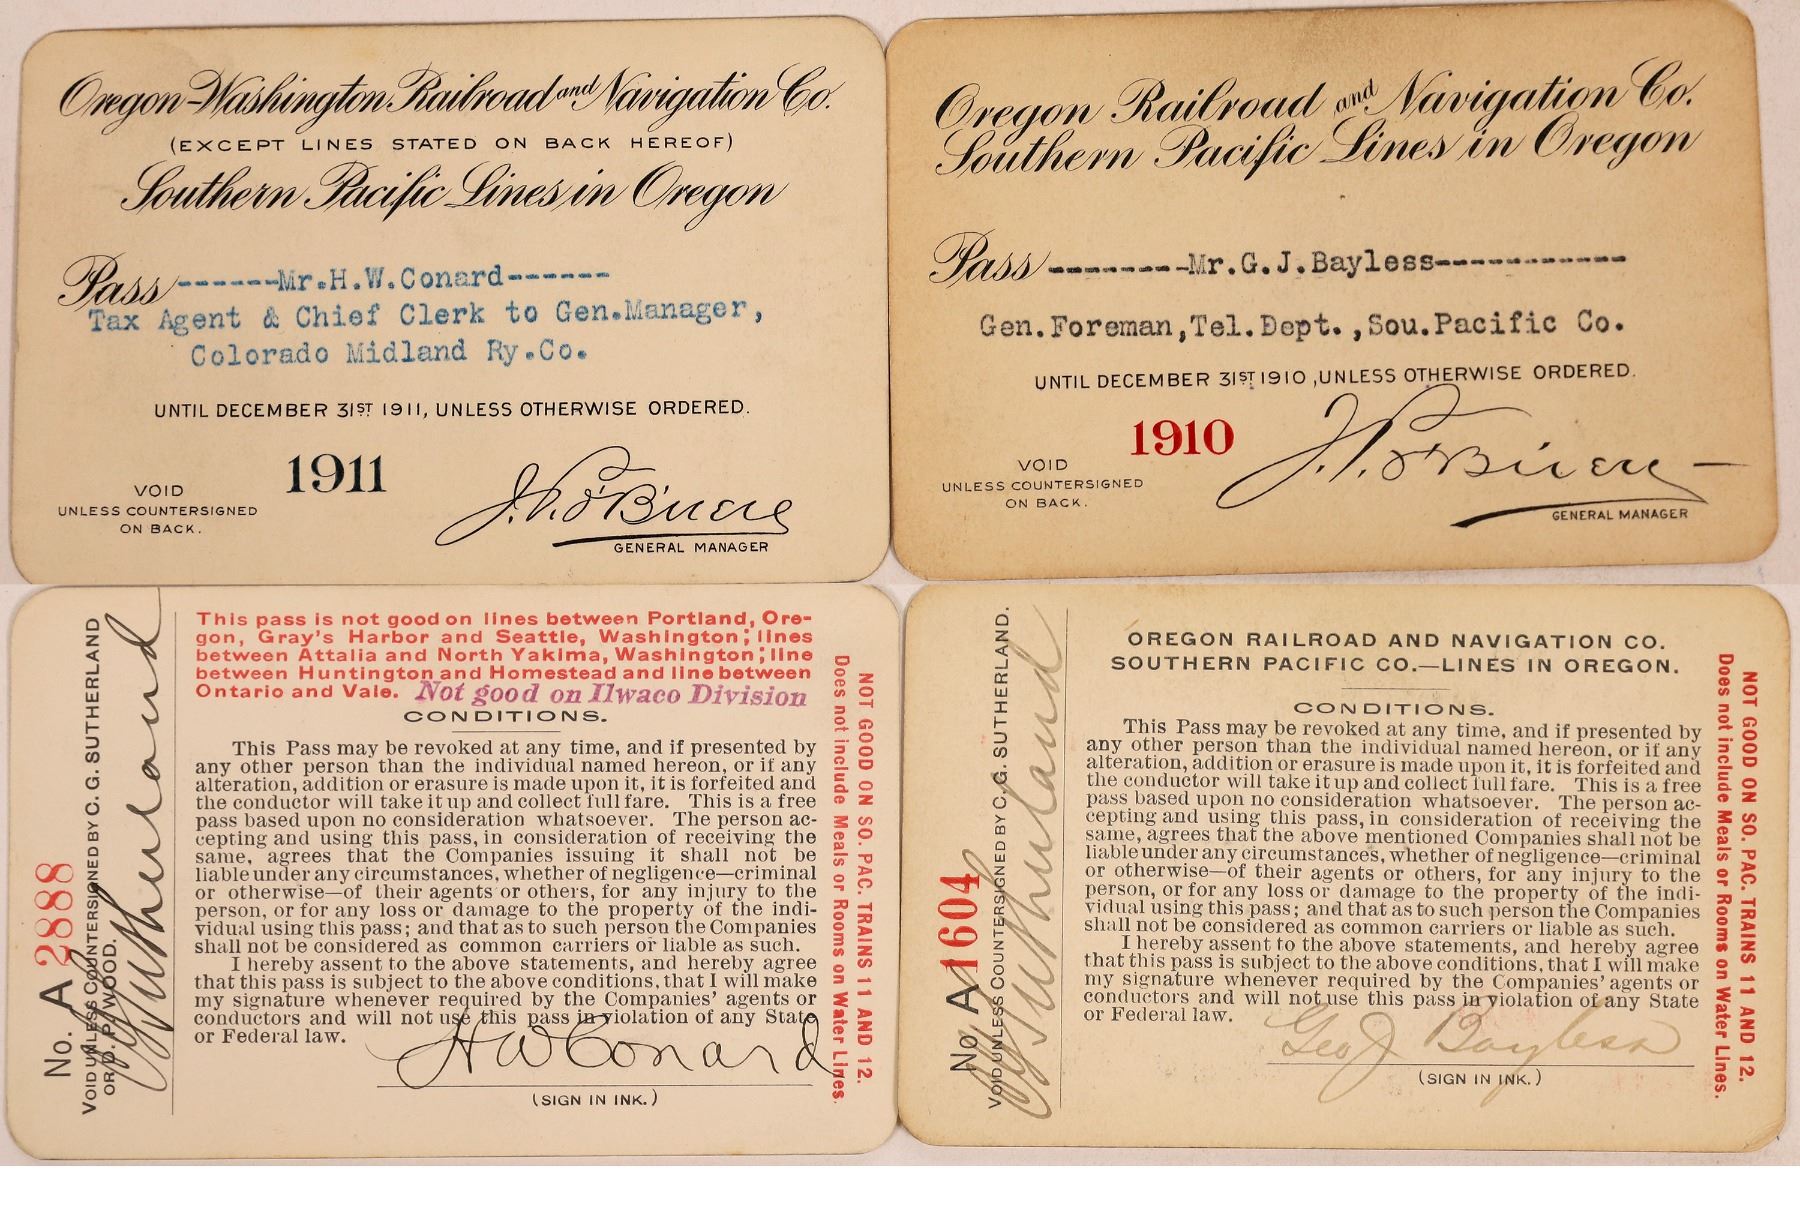 Oregon-Washington Railroad and Navigation Co.
(EXCEPT LINES STATED ON BACK HEREOF)
Southern Pacific Lines in Oregon
Pass ------Mr.H.W.Conard------
Tax Agent & Chief Clerk to Gen.Manager,
Colorado Midland Ry.Co.
UNTIL DECEMBER 31ST 1911, UNLESS OTHERWISE ORDERED.
1911
VOID
UNLESS COUNTERSIGNED
ON BACK.
J.P. O'Brien
GENERAL MANAGER
Oregon Railroad and Navigation Co.
Southern Pacific Lines in Oregon
Pass --------Mr.G.J.Bayless------------
Gen.Foreman,Tel.Dept.,Sou.Pacific Co.
UNTIL DECEMBER 31ST 1910, UNLESS OTHERWISE ORDERED.
1910
VOID
UNLESS COUNTERSIGNED
ON BACK.
J.P. O'Brien
GENERAL MANAGER
No. A 2888
VOID UNLESS COUNTERSIGNED BY C. G. SUTHERLAND
OR D. P. WOOD.
CG Sutherland
This pass is not good on lines between Portland, Ore-
gon, Gray's Harbor and Seattle, Washington; lines
between Attalia and North Yakima, Washington; line
between Huntington and Homestead and line between
Ontario and Vale. Not good on Ilwaco Division
CONDITIONS.
This Pass may be revoked at any time, and if presented by
any other person than the individual named hereon, or if any
alteration, addition or erasure is made upon it, it is forfeited and
the conductor will take it up and collect full fare. This is a free
pass based upon no consideration whatsoever. The person ac-
cepting and using this pass, in consideration of receiving the
same, agrees that the Companies issuing it shall not be
liable under any circumstances, whether of negligence—criminal
or otherwise—of their agents or others, for any injury to the
person, or for any loss or damage to the property of the indi-
vidual using this pass; and that as to such person the Companies
shall not be considered as common carriers or liable as such.
I hereby assent to the above statements, and hereby agree
that this pass is subject to the above conditions, that I will make
my signature whenever required by the Companies' agents or
conductors and will not use this pass in violation of any State
or Federal law.
HW Conard
(SIGN IN INK.)
NOT GOOD ON SO. PAC. TRAINS 11 AND 12.
Does not include Meals or Rooms on Water Lines.
No. A1604
VOID UNLESS COUNTERSIGNED BY C. G. SUTHERLAND.
CG Sutherland
OREGON RAILROAD AND NAVIGATION CO.
SOUTHERN PACIFIC CO.—LINES IN OREGON.
CONDITIONS.
This Pass may be revoked at any time, and if presented by
any other person than the individual named hereon, or if any
alteration, addition or erasure is made upon it, it is forfeited and
the conductor will take it up and collect full fare. This is a free
pass based upon no consideration whatsoever. The person ac-
cepting and using this pass, in consideration of receiving the
same, agrees that the above mentioned Companies shall not be
liable under any circumstances, whether of negligence—criminal
or otherwise—of their agents or others, for any injury to the
person, or for any loss or damage to the property of the indi-
vidual using this pass; and that as to such person the Companies
shall not be considered as common carriers or liable as such.
I hereby assent to the above statements, and hereby agree
that this pass is subject to the above conditions, that I will make
my signature whenever required by the Companies' agents or
conductors and will not use this pass in violation of any State
or Federal law.
Geo J Bayless
(SIGN IN INK.)
NOT GOOD ON SO. PAC. TRAINS 11 AND 12.
Does not include Meals or Rooms on Water Lines.